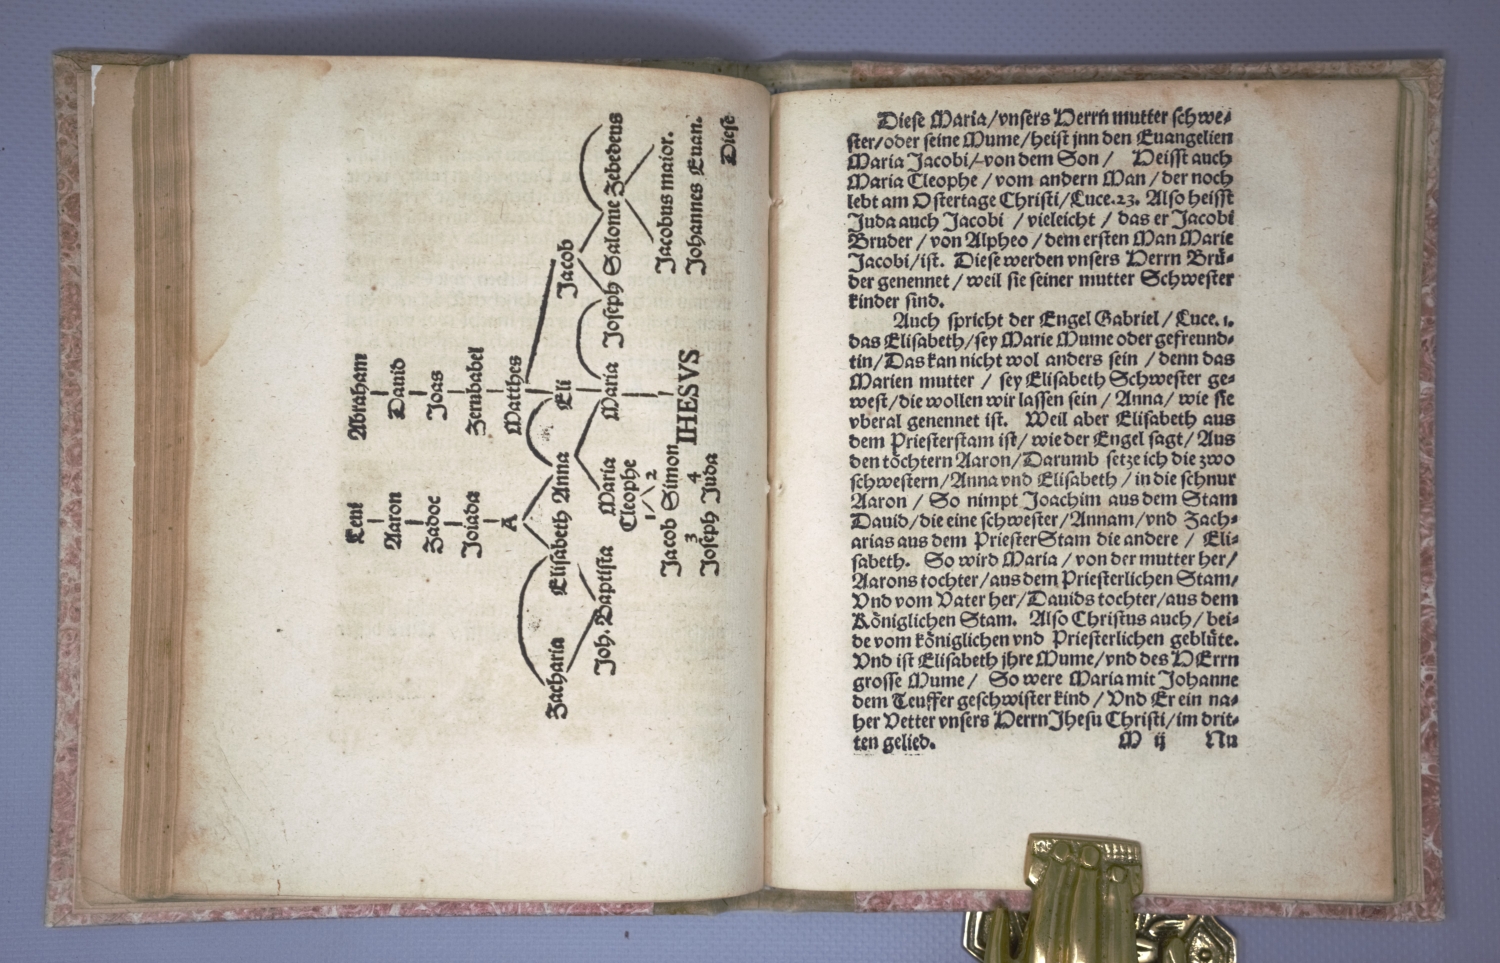 Leui Abraham
Aaron Dauid
Zadoc Joas
Joiada Zerubabel
A Matthes
Zacharia Elisabeth Anna Eli Jacob
Joh. Baptista Maria Maria Joseph Salome Zebedeus
Cleophe
1 2
Jacob Simon IHESVS Jacobus maior.
3 4
Joseph Juda Johannes Euan.
Diese
Diese Maria/vnsers Herrn mutter schwe⸗
ster/oder seine Mume/heist jnn den Euangelien
Maria Jacobi/von dem Son / Heisst auch
Maria Cleophe / vom andern Man / der noch
lebt am Ostertage Christi/Luce.23. Also heisst
Juda auch Jacobi / vieleicht / das er Jacobi
Bruder / von Alpheo / dem ersten Man Marie
Jacobi/ist. Diese werden vnsers Herrn Brü⸗
der genennet / weil sie seiner mutter Schwester
kinder sind.
Auch spricht der Engel Gabriel / Luce.1.
das Elisabeth/sey Marie Mume oder gefreund⸗
tin/Das kan nicht wol anders sein / denn das
Marien mutter / sey Elisabeth Schwester ge⸗
west/die wollen wir lassen sein / Anna/ wie sie
vberal genennet ist. Weil aber Elisabeth aus
dem Priesterstam ist/ wie der Engel sagt/ Aus
den töchtern Aaron/Darumb setze ich die zwo
schwestern/Anna vnd Elisabeth / in die schnur
Aaron / So nimpt Joachim aus dem Stam
Dauid/die eine schwester/Annam/vnd Zach⸗
arias aus dem PriesterStam die andere / Eli⸗
sabeth. So wird Maria / von der mutter her/
Aarons tochter/aus dem Priesterlichen Stam/
Vnd vom Vater her/Dauids tochter/aus dem
Königlichen Stam. Also Christus auch/ bei⸗
de vom königlichen vnd Priesterlichen geblüte.
Vnd ist Elisabeth jhre Mume/vnd des HErrn
grosse Mume / So were Maria mit Johanne
dem Teuffer geschwister kind / Vnd Er ein na⸗
her Vetter vnsers Herrn Jhesu Christi/im drit⸗
ten gelied. M ij Nu